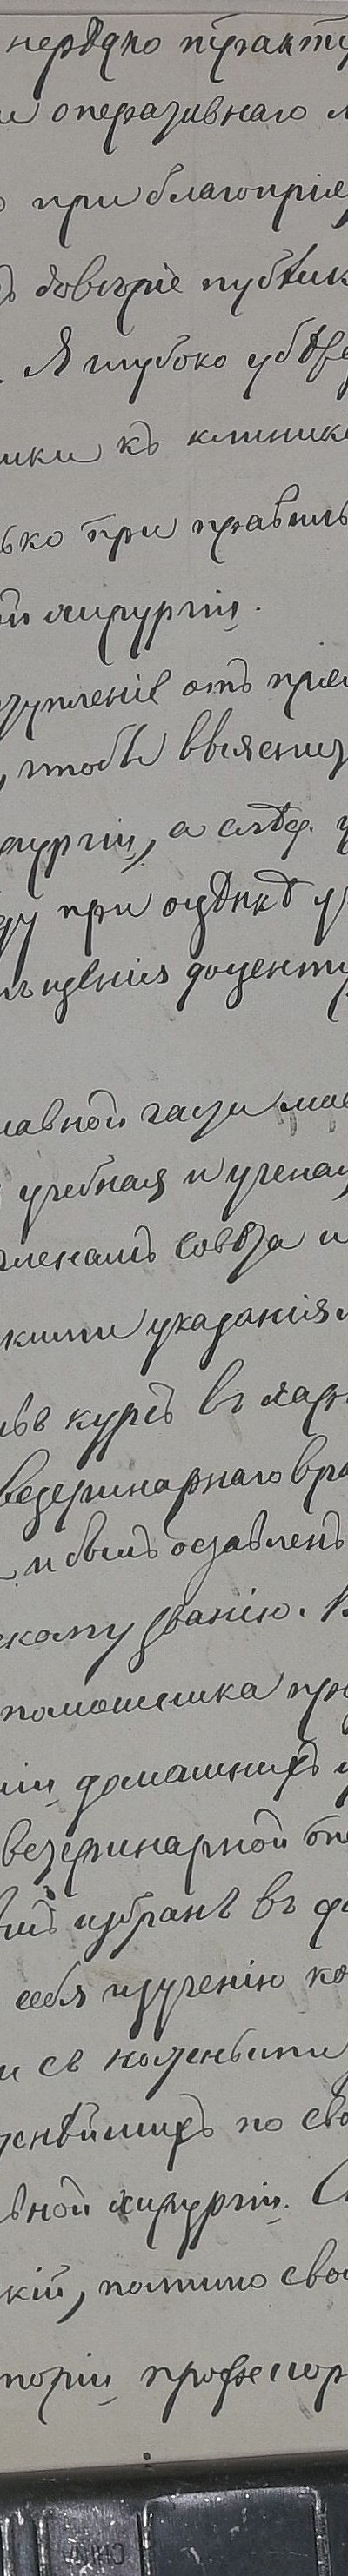 нерѣдко тракту
и оперативнаго л
при благопрія
довѣріе публик
Я глубоко убѣ
ики къ клиник
ько при правиль
й хирургіи.
ступленіе отъ
, чтобы выяснит
рургіи, а слѣд. у
ду при оцѣнкѣ у
ещенія доценту
лавной части
учебная и ученая
членамъ Совѣта и
кими указаніям
курсъ въ Харь
ветеринарнаго вра
и былъ оставленъ
скому званію. В
помощника пр
іи домашнихъ
ветеринарной
избранъ въ
себя изученію ко
и съ
по сво
ьной хирургіи.
кій, помимо сво
торіи профессор